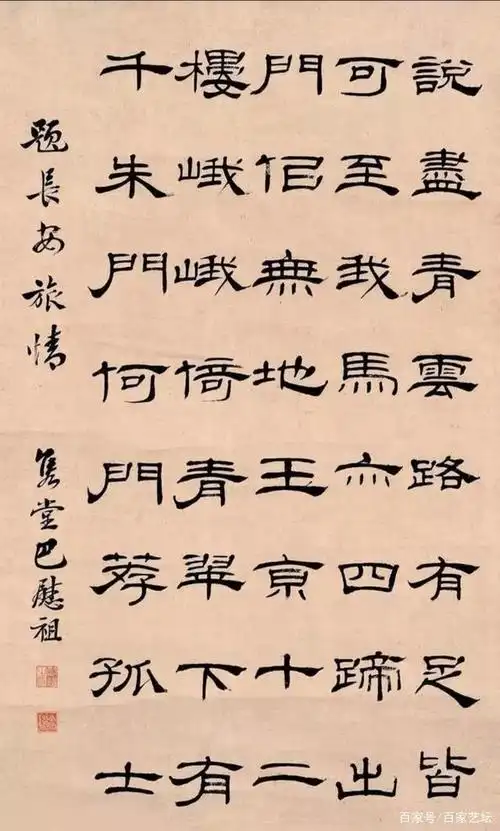 說盡青雲路有足皆
可至我馬亦四蹄出
門佀無地玉京十二
樓峨峨倚青翠下有
千朱門何門荐孤士
題長安旅情
雋堂巴慰祖
百家号/百家艺坛